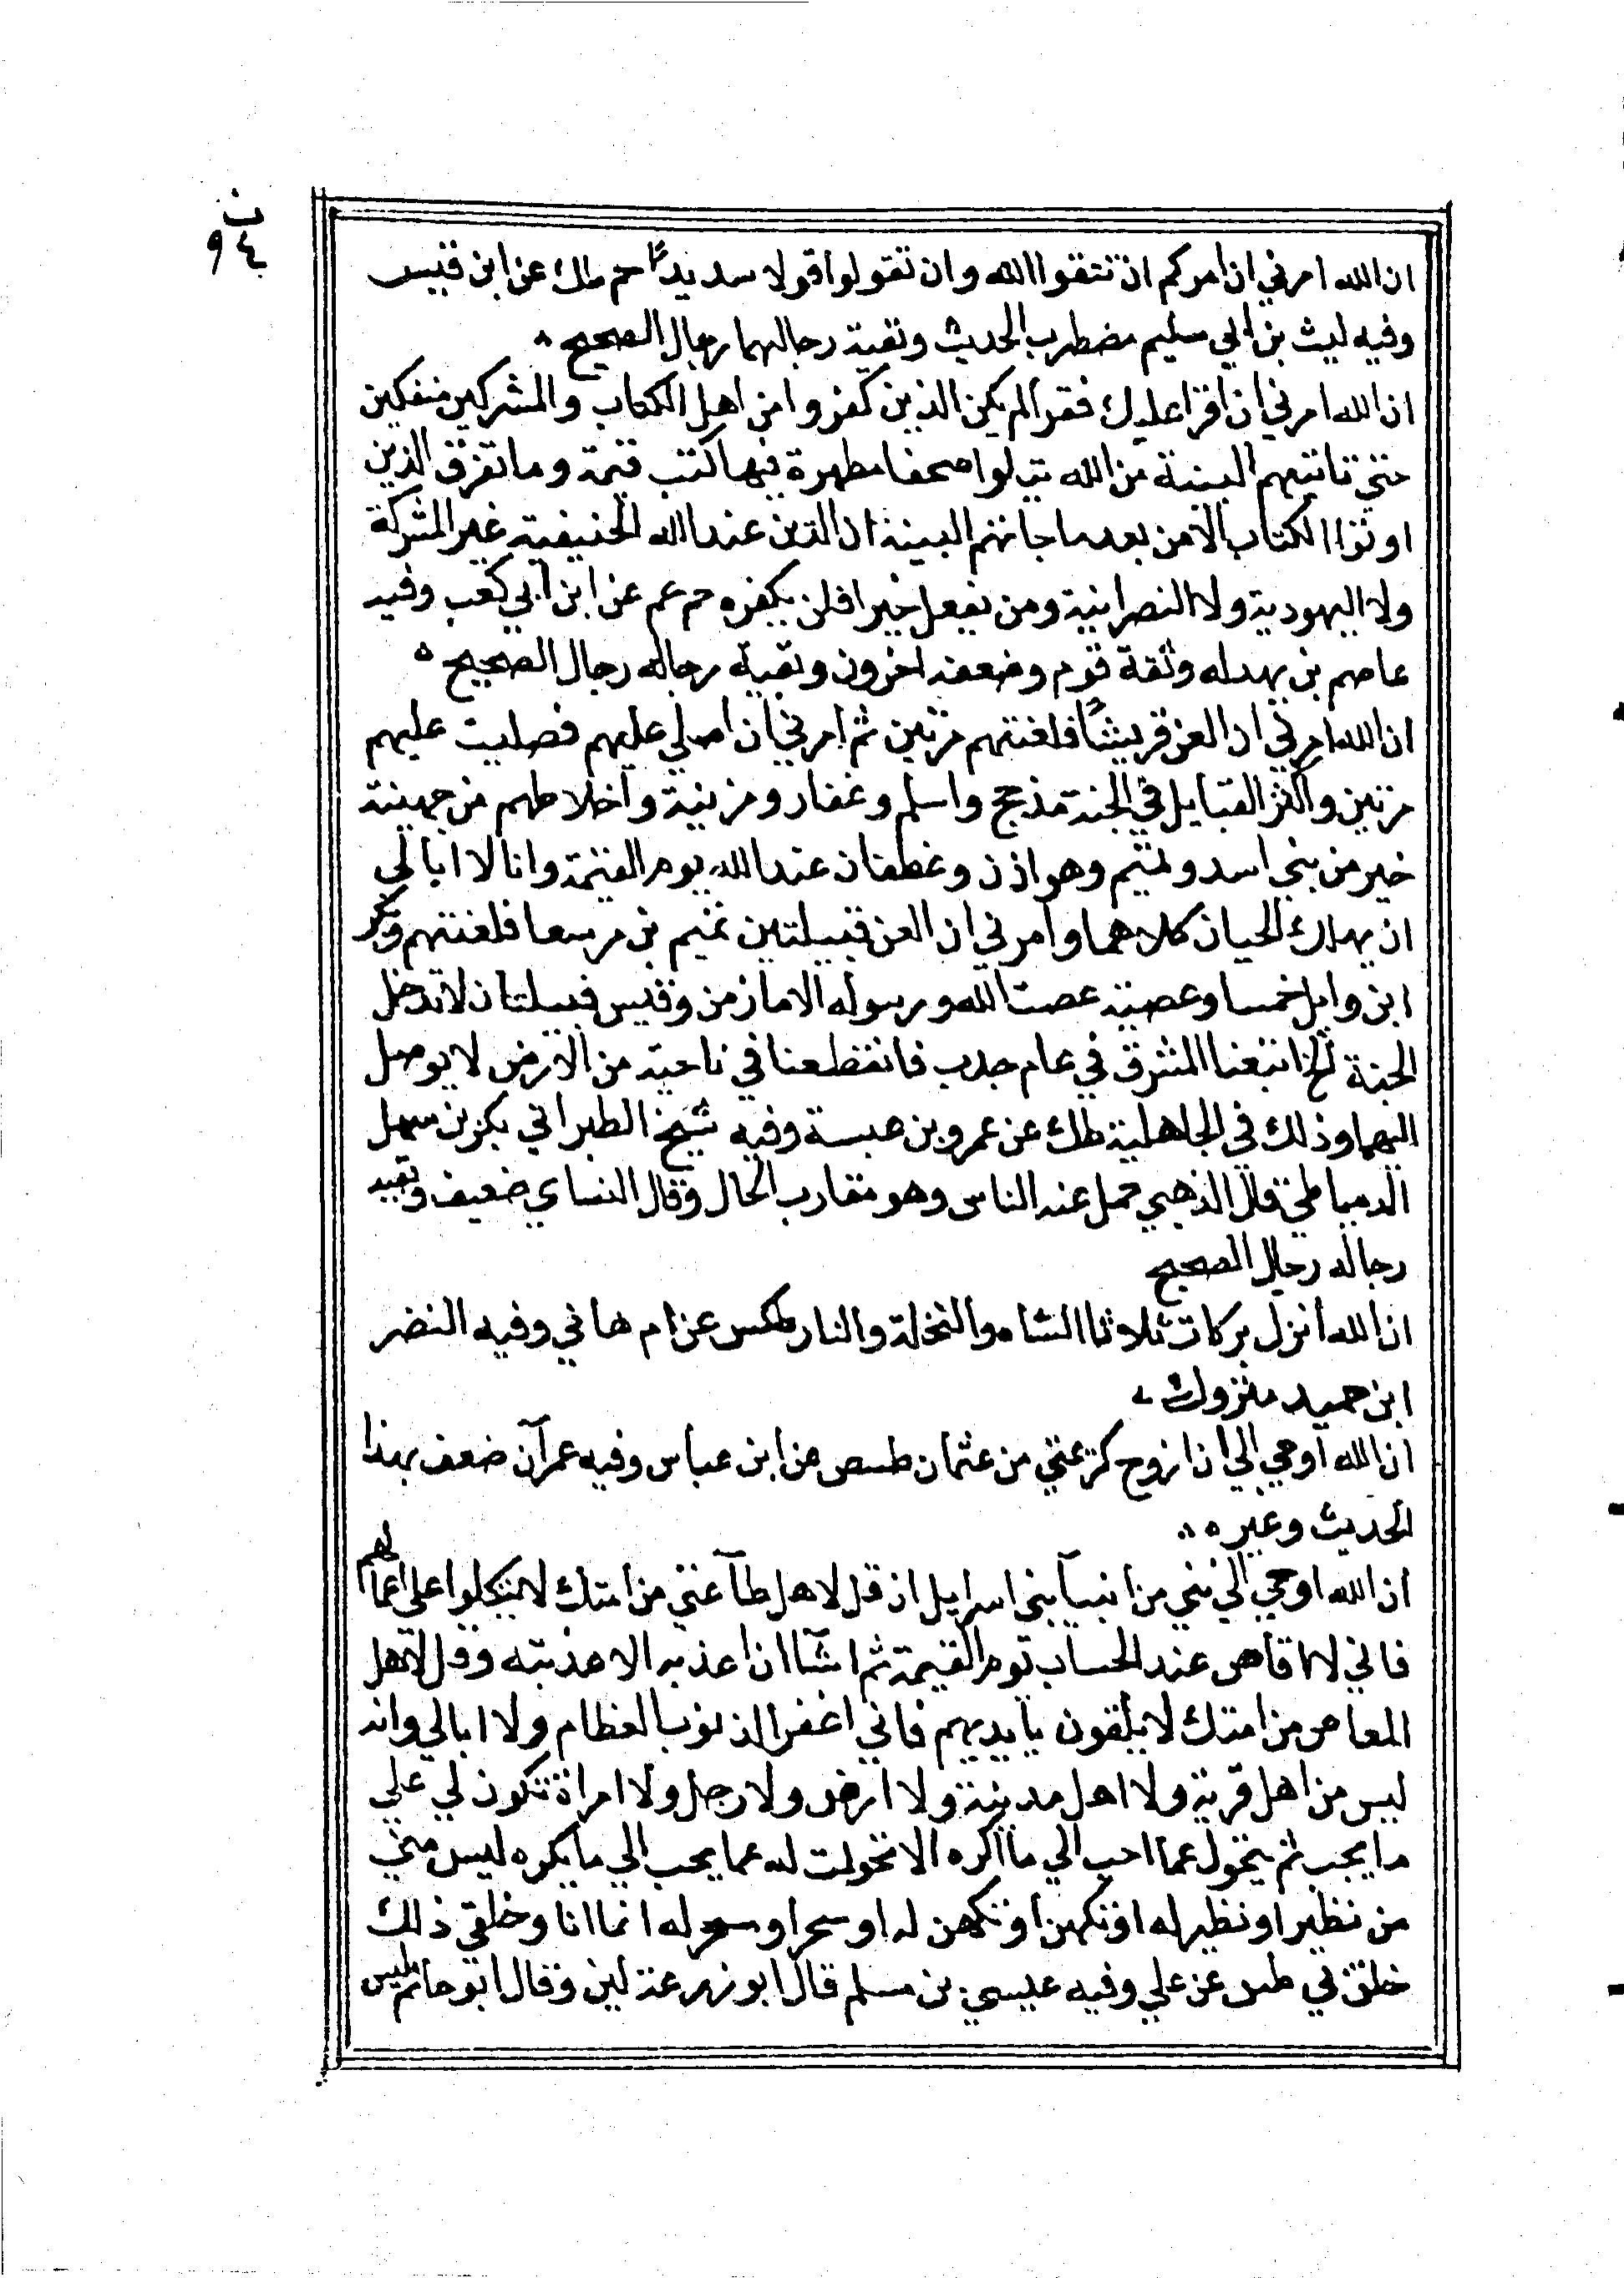 ن
٩٤
ان الله امرني ان امركم ان تتقوا الله وان تقولوا قولا سديدًا حم طك عن ابن قيس
وفيه ليث بن ابي سليم مضطرب الحديث وبقية رجالهما رجال الصحيح ه
ان الله امرني ان اقرا عليك فقرا لم يكن الذين كفروا من اهل الكتاب والمشركين منفكين
حتي تاتيهم البينة من الله يتلوا صحفا مطهرة فيها كتب قيمة وما تفرق الذين
اوتوا الكتاب الا من بعد ما جاتهم البينة ان الدين عند الله الحنيفية غير المشركة
ولا اليهودية ولا النصرانية ومن يفعل خيرا فلن يكفره حم عم عن ابن ابي كعب وفيه
عاصم بن بهدله وثقة قوم وضعفه اخرون وبقية رجاله رجال الصحيح ه
ان الله امرني ان العن قريشًا فلعنتهم مرتين ثم امرني ان اصلي عليهم فصليت عليهم
مرتين واكثر القبايل في الجنة مذحج واسلم وغفار ومزينة واخلاطهم من جهينة
خير من بني اسد وتميم وهوازن وغطفان عند الله يوم القيمة وانا لا ابالي
ان يهلك الحيان كلاهما وامرني ان العن قبيلتين تميم بن مر سبعا فلعنتهم وبكر
ابن وايل خمسا وعصية عصت الله ورسوله الا مازن وقيس قبيلتان لا تدخل
الجنة اتبعنا المشرق في عام جدب فانقطعنا في ناحية من الارض لا يوصل
اليهما وذلك في الجاهلية طك عن عمرو بن عبسة وفيه شيخ الطبراني بكر بن سهل
الدمياطي قال الذهبي حمل عنه الناس وهو مقارب الحال وقال النساي ضعيف وبقية
رجاله رجال الصحيح
ان الله انزل بركات ثلاثا الشاه والنخلة والنار طكس عن ام هاني وفيه النضر
ابن حميد متروك ه
ان الله اوحي الي ان ازوج كريمتي من عثمان طسص عن ابن عباس وفيه عمران ضعف بهذا
الحديث وغيره ه
ان الله اوحي الي نبي من انبيآ بني اسرايل ان قل لاهل طآعتي من امتك لا يتكلوا علي اعمالهم
فاني لا اقاص عند الحساب يوم القيمة ثم اشآ ان اعذبه الا عذبته وقل لاهل
المعاصي من امتك لا يلقون بايديهم فاني اغفر الذنوب العظام ولا ابالي وانه
ليس من اهل قرية ولا اهل مدينة ولا ارض ولا رجل ولا امراة تكون لي علي
ما يحب ثم يتحول عما احب الي ما اكره الا تحولت له عما يحب الي ما يكره ليس مني
من تطير او تطير له او تكهن او تكهن له او سحر او سحر له انما انا وخلقي ذلك
خلق لي طس عن علي وفيه عيسي بن مسلم قال ابو زرعة لين وقال ابو حاتم ليس